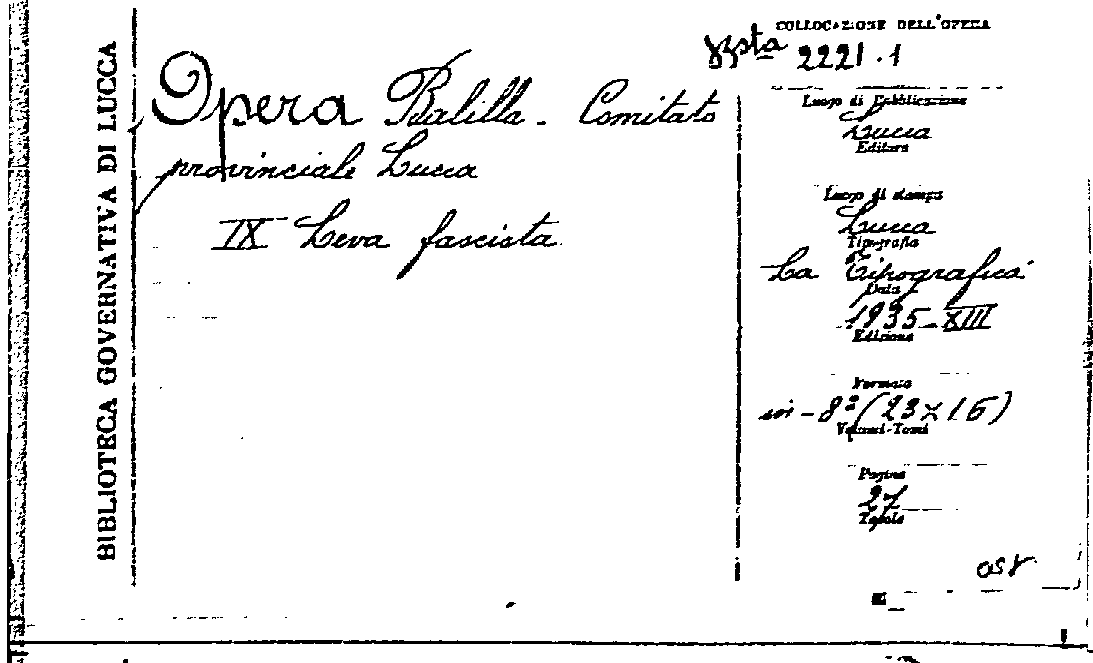 BIBLIOTECA GOVERNATIVA DI LUCCA
Opera Balilla - Comitato
provinciale Lucca
IX Leva fascista
COLLOCAZIONE DELL'OPERA
Bsta 2221.1
Luogo di Pubblicazione
Lucca
Editore
Luogo di stampa
Lucca
Tipografia
La Tipografica
Data
1935-XIII
Edizione
Formato
in-8º (23×16)
Volumi-Tomi
Pagine
27
Tavole